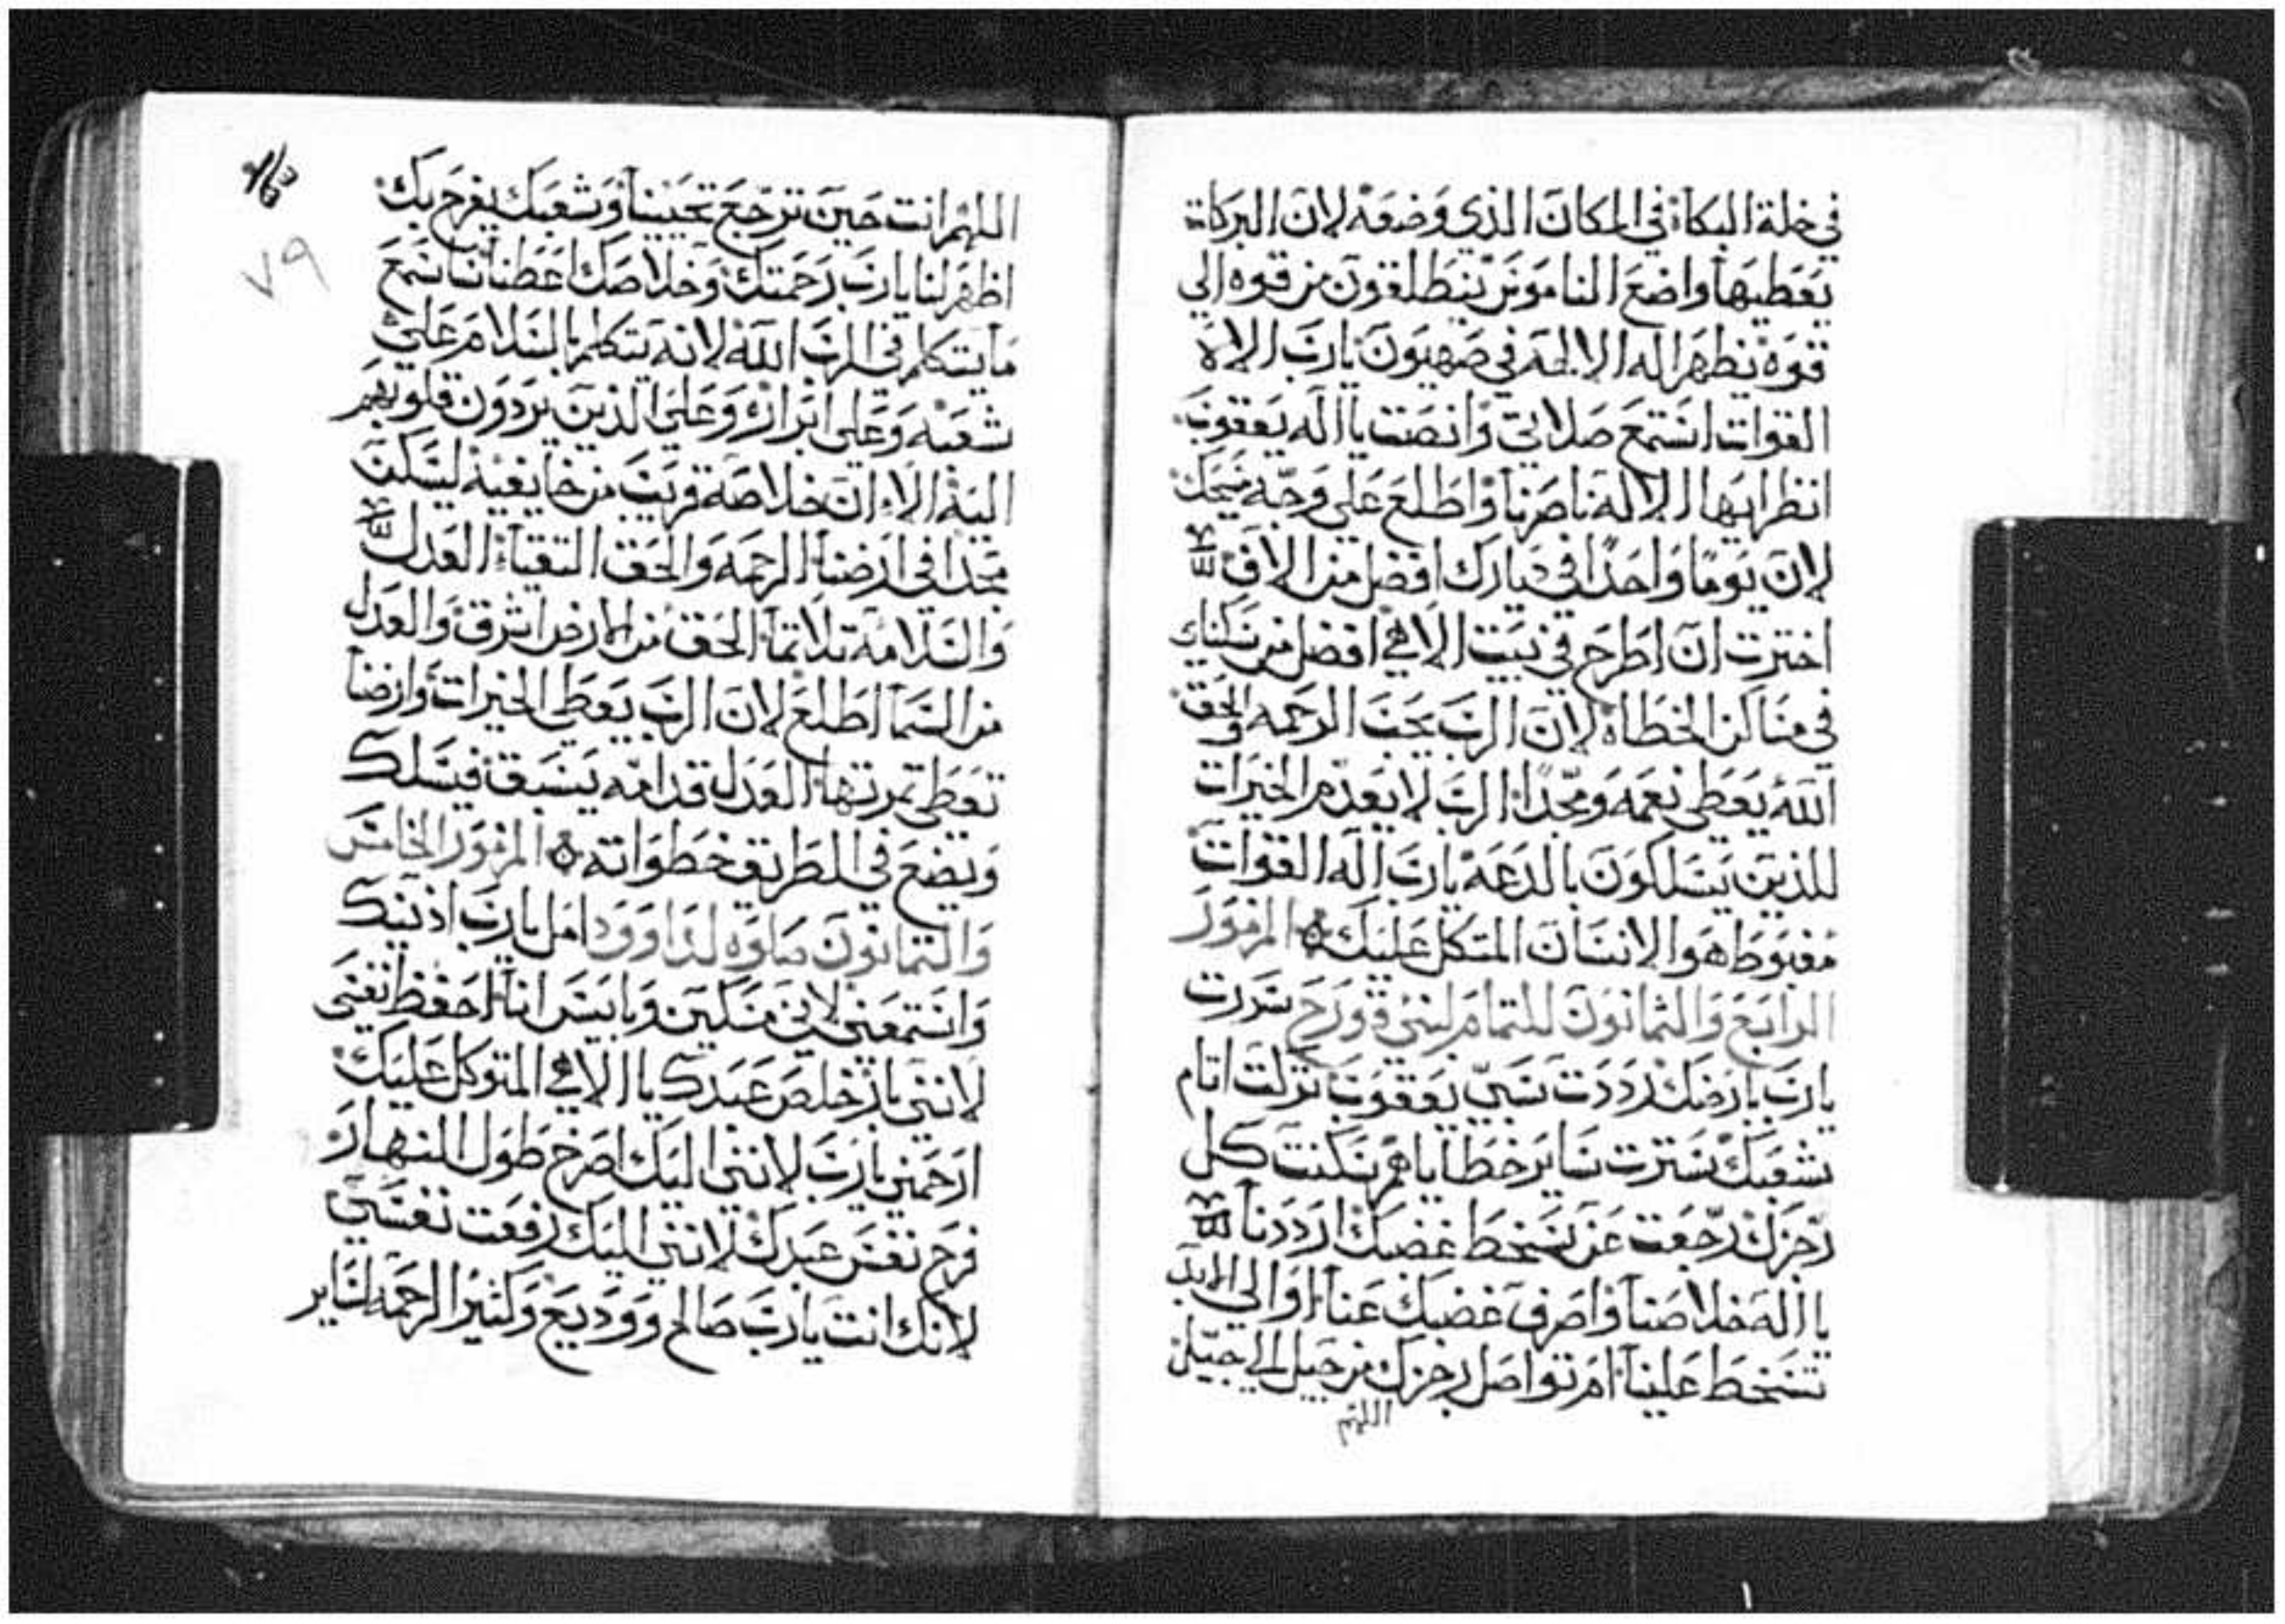 في خلة البكاء في المكان الذي وضعه لان البركات
يعطيها واضع الناموس ينطلقون من قوه الي
قوه نظهر اله الالهه في صهيون يارب الاه
القوات استمع صلاتي وانصت يا اله يعقوب
انظر ايها الاله ناصرنا واطلع علي وجه مسيحك
لان يوما واحدا في ديارك افضل من الاف
اخترت ان اطرح في بيت الاهي افضل من سكناي
في مساكن الخطاه لان الرب يحب الرحمه والحق
الله يعطي نعمه ومجدا الرب لا يعدم الخيرات
للذين يسلكون بالدعه يارب اله القوات
مغبوط هو الانسان المتكل عليك المزمور
الرابع والثمانون للتمام لبني قورح سررت
يارب بارضك رددت سبي يعقوب تركت اثام
شعبك سترت ساير خطاياهم سكنت كل
رجزك رجعت عن سخط غضبك ارددنا
يا اله خلاصنا واصرف غضبك عنا او الي الابد
تسخط علينا ام تواصل رجزك من جيل الي جيل
اللهم
اللهم انت حين ترجع تحيينا وشعبك يفرح بك
اظهر لنا يارب رحمتك وخلاصك اعطنا انا اسمع
ما يتكلم في الرب الله لانه يتكلم بالسلام علي
شعبه وعلي ابراره وعلي الذين يردون قلوبهم
اليه الا ان خلاصه قريب من خايفيه ليسكن
مجدا في ارضنا الرحمه والحق التقيا العدل
والسلامة تلاثما الحق من الارض اشرق والعدل
من السما اطلع لان الرب يعطي الخيرات وارضنا
تعطي ثمرتها العدل قدامه يسبق فيسلك
ويضع في الطريق خطواته المزمور الخامس
والثمانون صلوه لداوود امل يارب اذنيك
واستمعني لاني مسكين وبايس انا احفظ نفسي
لانني بار خلص عبدك يا الاهي المتوكل عليك
ارحمني يارب لانني اليك اصرخ طول النهار
فرح نفس عبدك لانني اليك رفعت نفسي
لانك انت يارب صالح ووديع وكثير الرحمه لساير
٧٩